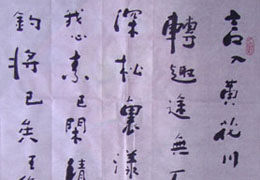 言入黄花川
轉趣途無
深松裏漾
我心素已閑清
釣將已矣王